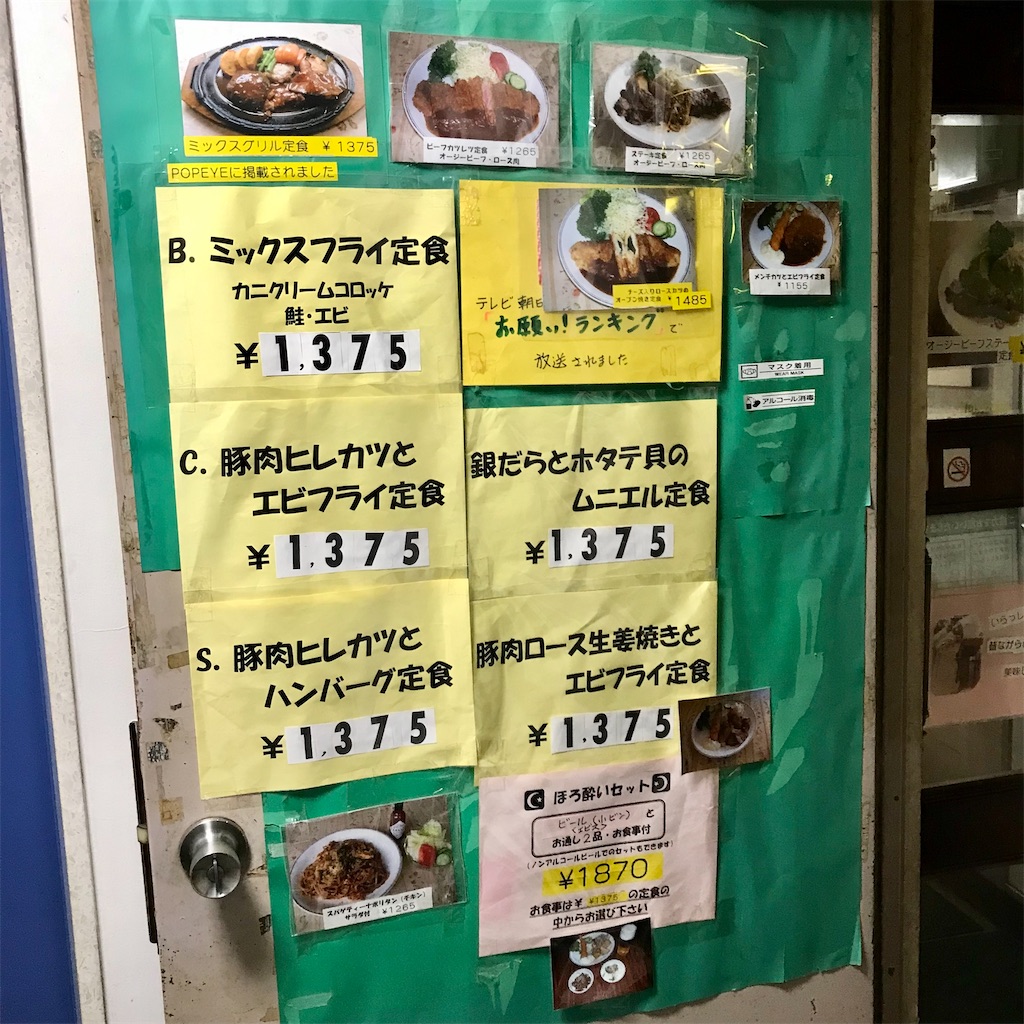 ミックスグリル定食 ¥1375
POPEYEに掲載されました
ビーフカツレツ定食 ¥1265
オージービーフ・ロース肉
ステーキ定食 ¥1265
オージービーフ・ロース肉
B. ミックスフライ定食
カニクリームコロッケ
鮭・エビ
¥1,375
チーズ入りロースカツの
オーブン焼き定食 ¥1485
テレビ朝日
お願い!ランキングで
放送されました
メンチカツとエビフライ定食
¥1155
マスク着用
WEAR MASK
アルコール消毒
C. 豚肉ヒレカツと
エビフライ定食
¥1,375
銀だらとホタテ貝の
ムニエル定食
¥1,375
S. 豚肉ヒレカツと
ハンバーグ定食
¥1,375
豚肉ロース生姜焼きと
エビフライ定食
¥1.375
ほろ酔いセット
ビール(小ビン)と
(エビス)
お通し2品・お食事付
(ノンアルコールビールでのセットもできます)
¥1870
お食事は¥ ¥1375 の定食の
中からお選び下さい
スパゲティーナポリタン(チキン)
サラダ付 ¥1265
オージービーフステー
定食
いらっし
昔ながら